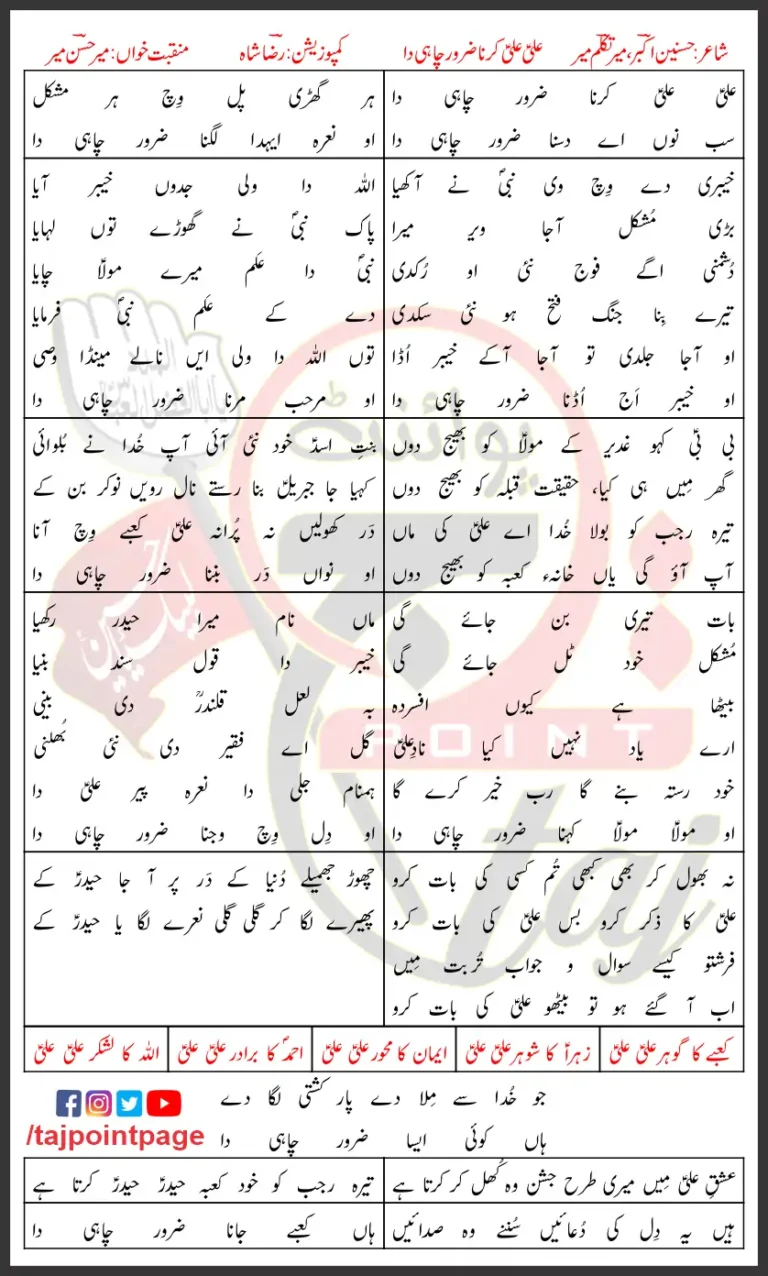 شاعر: حسنین اکبرؔ، میر تکلمؔ میر علیؑ علیؑ کرنا ضرور چاہی دا کمپوزیشن: رضاؔ شاہ منقبت خواں: میر حسنؔ میر
علیؑ علیؑ کرنا ضرور چاہی دا
سب نوں اے دسنا ضرور چاہی دا
ہر گھڑی پل وِچ ہر مشکل
او نعرہ ایہدا لگنا ضرور چاہی دا
خیبری دے وِچ وی نبیؐ نے آکھیا
بڑی مُشکل آجا ویر میرا
دُشمنی اگے فوج نئی او رُکدی
تیرے بِنا جنگ فتح ہو نئی سکدی
او آجا جلدی تو آجا آکے خیبر اُڈا
او خیبر اَج اُڈنا ضرور چاہی دا
اللہ دا ولی جدوں خیبر آیا
پاک نبیؐ نے گھوڑے توں لہایا
نبیؐ دا عَلم میرے مولاؑ چایا
دے کے عَلم نبیؐ فرمایا
توں اللہ دا ولی ایں نالے مینڈا وصی
او مرحب مرنا ضرور چاہی دا
بی بیؑ کہو غدیر کے مولاؑ کو بھیج دوں
گھر مِیں ہی کیا، حقیقت قبلہ کو بھیج دوں
تیرہ رجب کو بولا خُدا اے علیؑ کی ماں
آپ آؤ گی یاں خانہء کعبہ کو بھیج دوں
بنتِ اسدؑ خود نئی آئی آپ خُدا نے بُلوائی
کہیا جا جبریلؑ بنا رستے نال رویں نوکر بن کے
دَر کھولیں نہ پُرانہ علیؑ کعبے وِچ آنا
او نواں دَر بننا ضرور چاہی دا
بات تیری بن جائے گی
مُشکل خود ٹل جائے گی
بیٹھا ہے کیوں افسردہ
ارے یاد نہیں کیا نادِعلیؑ
خود رستہ بنے گا رب خیر کرے گا
او مولاؑ مولاؑ کہنا ضرور چاہی دا
ماں نام میرا حیدر رکھیا
خیبر دا قول سند بنیا
بہ لعل قلندرؒ دی بینی
گل اے فقیر دی نئی بُھلنی
ہمنام جلی دا نعرہ پیر علیؑ دا
او دِل وِچ وجنا ضرور چاہی دا
نہ بھول کر بھی کبھی تُم کسی کی بات کرو
علیؑ کا ذکر کرو بس علیؑ کی بات کرو
فرشتو کیسے سوال و جواب تُربت مِیں
اب آ گئے ہو تو بیٹھو علیؑ کی بات کرو
چھوڑ جھمیلے دُنیا کے دَر پر آ جا حیدرؑ کے
پھیرے لگا کر گلی گلی نعرے لگا یا حیدرؑ کے
کعبے کا گوہر علیؑ علیؑ زہراؑ کا شوہر علیؑ علیؑ ایمان کا محور علیؑ علیؑ احمدؐ کا برادر علیؑ علیؑ اللہ کا لشکر علیؑ علیؑ
جو خُدا سے مِلا دے پار کشتی لگا دے
ہاں کوئی ایسا ضرور چاہی دا
/tajpointpage
عشقِ علیؑ مِیں میری طرح جشن وہ کُھل کر کرتا ہے
تیرہ رجب کو خود کعبہ حیدرؑ حیدرؑ کرتا ہے
ہیں یہ دِل کی دُعائیں سُننے وہ صدائیں
ہاں کعبے جانا ضرور چاہی دا
پوائنٹ
POINT
taj